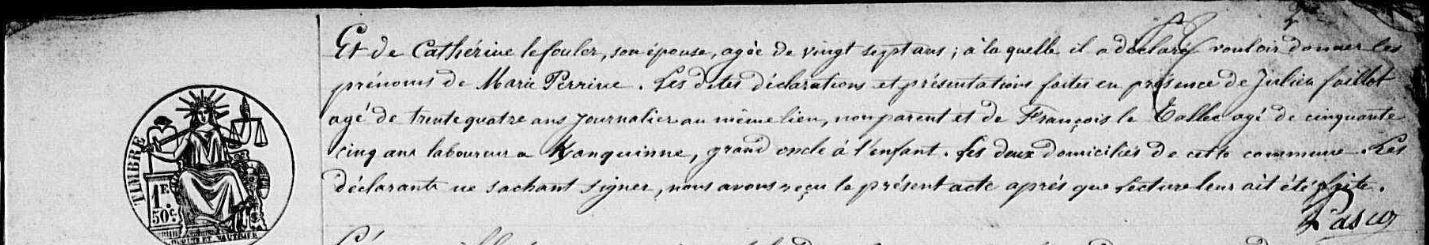 Et de Catherine lefouler, son épouse, agée de vingt sept ans ; à laquelle il a déclaré vouloir donner les
prénoms de Marie Perrine . Les dites déclarations et présentations faites en présence de Julien faillot
agé de trente quatre ans journalier au même lieu, non parent et de François le Callec agé de cinquante
cinq ans laboureur a Kanquinne, grand oncle à l'enfant. les deux domiciliés de cette commune . Les
déclarants ne sachant signer, nous avons reçu le présent acte aprés que lecture leur ait été faite.
Pasco
TIMBRE
1F.
50c.